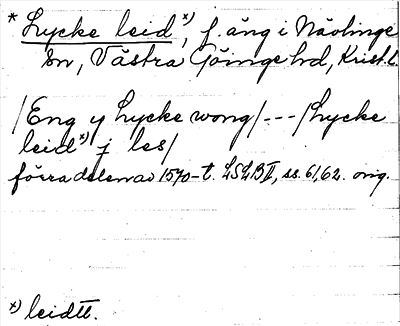 * Lycke leid *), f. äng i Näolinge
sn, Västra Göinge hd, Krist. l.
/Eng y Lycke wong/---/Lycke
leid *) j les/
förra delen av 1570-t. LSLB II, ss. 61, 62. orig.
*) leidtt.